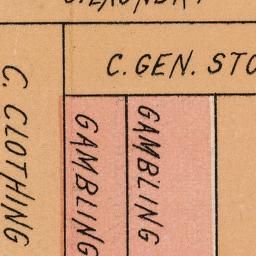 C. GEN. STO
C. CLOTHING
GAMBLING
GAMBLING